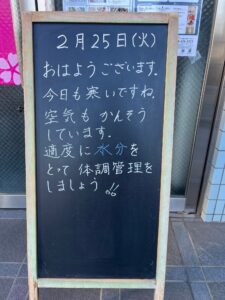 2月25日(火)
おはようございます。
今日も寒いですね。
空気も かんそう
しています。
適度に水分を
とって 体調管理を
しましょう!!